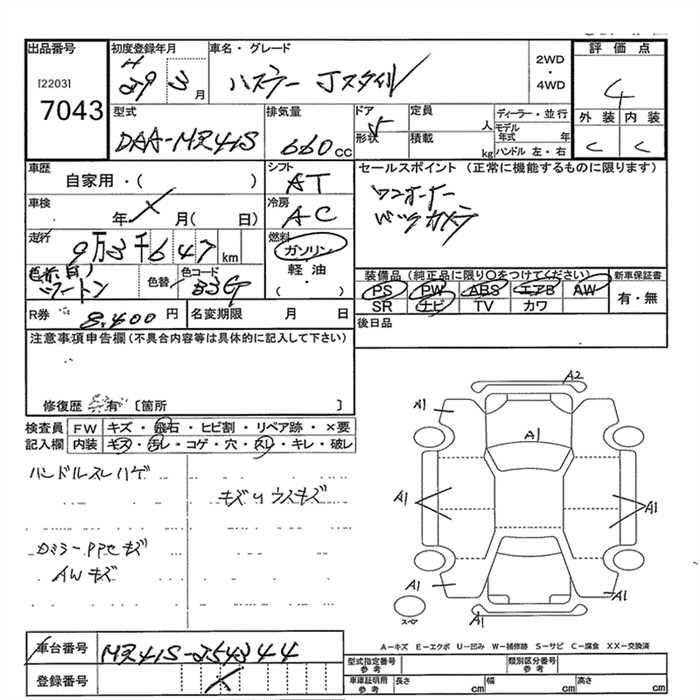 出品番号
[2203]
7043
初度登録年月
H 29 3 月
車名・グレード
ハスラー Jスタイル
2WD
・
4WD
評価点
4
外装 内装
C C
型式
DAA-MR41S
排気量
660 cc
ドア
5
形状
定員
人
積載
kg
ディーラー・並行
モデル
年式 年
ハンドル 左・右
車歴
自家用・( )
シフト
AT
セールスポイント(正常に機能するものに限ります)
ワンオーナー
バックカメラ
車検
年 月( 日)
冷房
AC
走行
9万3千647 km
燃料
ガソリン
軽油
( )
ツートン
色替
色コード
装備品(純正品に限り○をつけてください)
新車保証書
PS PW ABS エアB AW
SR ナビ TV カワ
有・無
R券 8,400 円
名変期限 月 日
後日品
注意事項申告欄(不具合内容等は具体的に記入して下さい)
修復歴 有 〔箇所 〕
検査員
記入欄
FW キズ・飛石・ヒビ割・リペア跡・×要
内装 キズ・汚レ・コゲ・穴・スレ・キレ・破レ
ハンドルスレハゲ
キズ
ウスキズ
AWキズ
A2
A1
A1
A1
A1
A1
A1
A1
スペア
車台番号
MR41S-254344
登録番号
A-キズ E-エクボ U-凹み W-補修跡 S-サビ C-腐食 XX-交換済
型式指定番号
参考
類別区分番号
参考
車庫証明用
参考
長さ cm
幅 cm
高さ cm